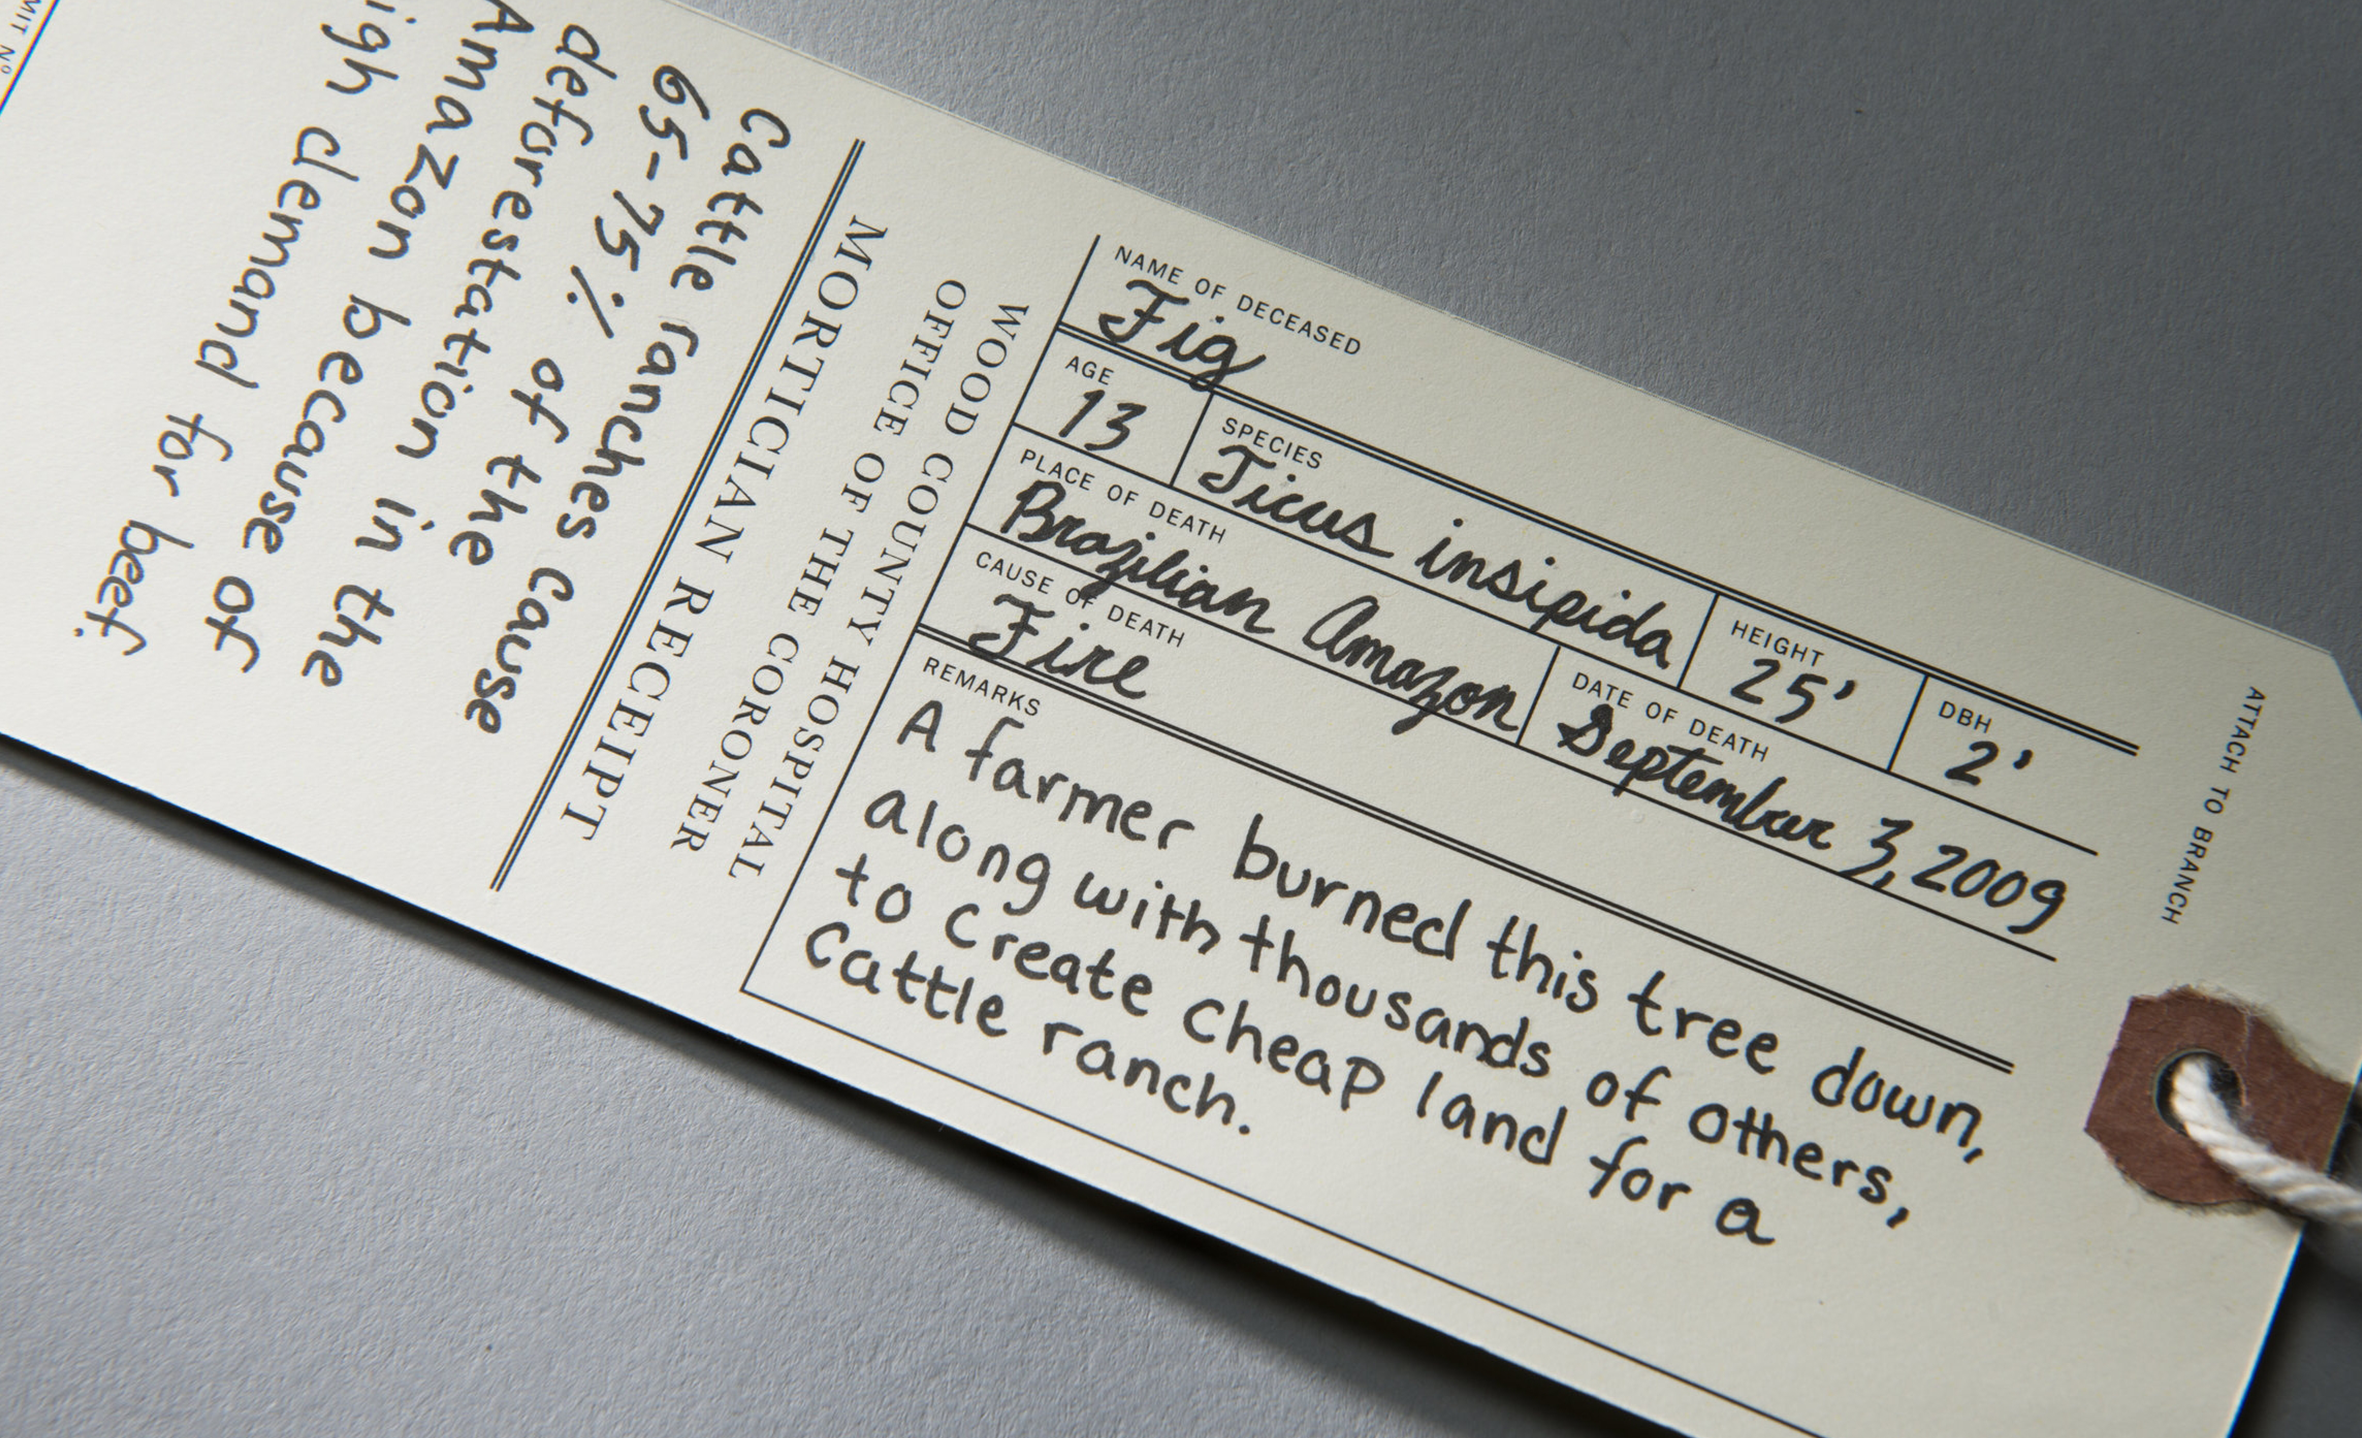 ATTACH TO BRANCH
NAME OF DECEASED
Fig
AGE
13
SPECIES
Ficus insipida
HEIGHT
25'
DBH
2'
PLACE OF DEATH
Brazilian Amazon
DATE OF DEATH
September 3, 2009
CAUSE OF DEATH
Fire
REMARKS
A farmer burned this tree down,
along with thousands of others,
to create cheap land for a
cattle ranch.
WOOD COUNTY HOSPITAL
OFFICE OF THE CORONER
MORTICIAN RECEIPT
Cattle ranches cause
65-75% of the
deforestation in the
Amazon because of
igh demand for beef.
MIT Nº